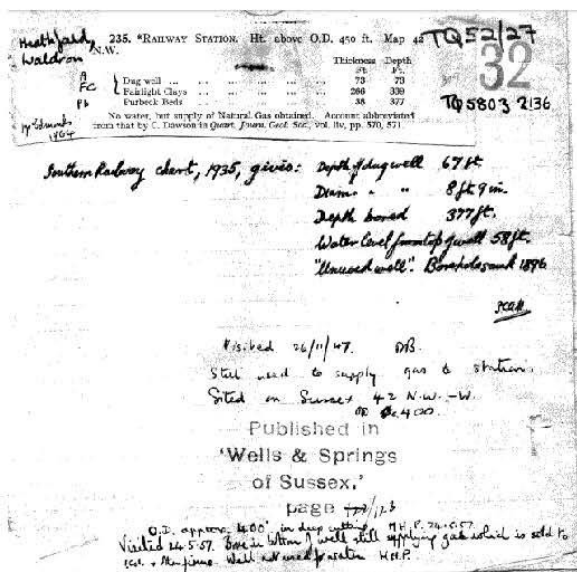 Heathfield, Waldron
235. *RAILWAY STATION. Ht. above O.D. 450 ft. Map 42 N.W.
TQ52/27
32
Thickness Depth
Ft. Ft.
A Dug well ... 73 73
FC Fairlight Clays ... 266 339
Pb Purbeck Beds ... 38 377
TQ 5803 2136
No water, but supply of Natural Gas obtained. Account abbreviated
from that by C. Dawson in Quart. Journ. Geol. Soc., vol. liv, pp. 570, 571.
Southern Railway chart, 1935, gives: Depth of dug well 67 ft.
Diam. " " 8 ft. 9 in.
Depth bored 377 ft.
Water level from top of well 58 ft.
"Unused well". Borehole sunk 1896
Visited 26/11/47.
Still used to supply gas to station.
Sited on Sussex 42 N.W. - W.
OD 400.
Published in
'Wells & Springs
of Sussex,'
page 123
O.D. approx. 400' in deep cutting. H.H.P. 24.5.57.
Visited 24.5.57. Bore in bottom of well still supplying gas which is sold to
Well not used for water H.H.P.